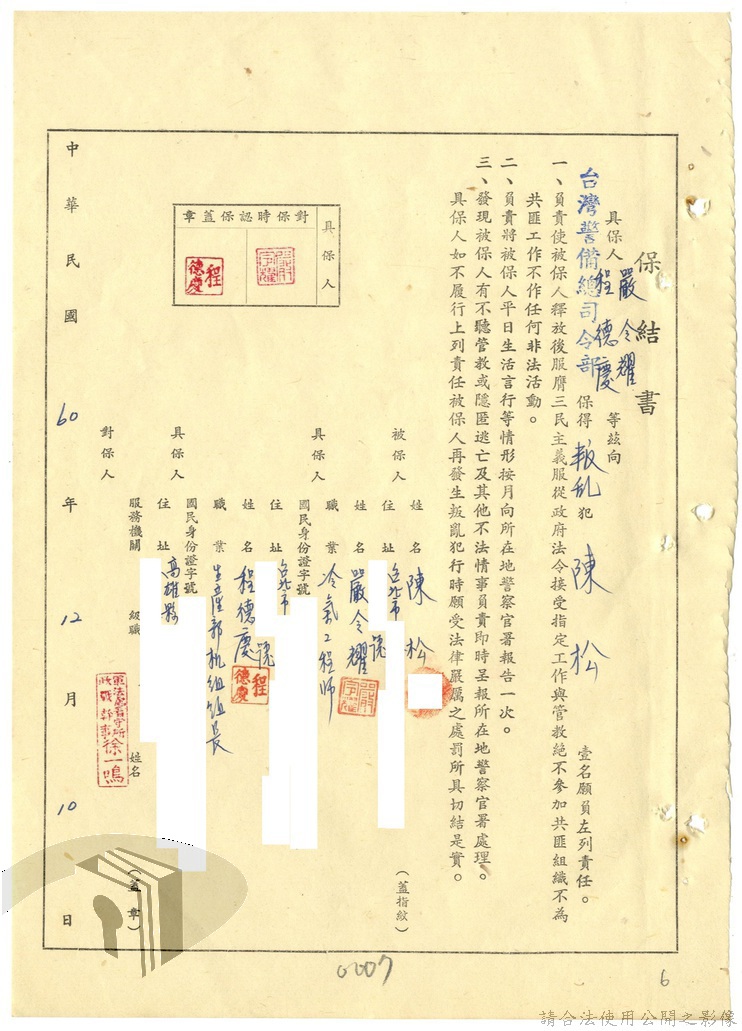 保結書
具保人嚴令耀程德慶等茲向
台灣警備總司令部保得叛乱犯陳松壹名願負左列責任。
一、負責使被保人釋放後服膺三民主義服從政府法令接受指定工作與管教絕不參加共匪組織不為
共匪工作不作任何非法活動。
二、負責將被保人平日生活言行等情形按月向所在地警察官署報告一次。
三、發現被保人有不聽管教或隱匿逃亡及其他不法情事負責即時呈報所在地警察官署處理。
具保人如不履行上列責任被保人再發生叛亂犯行時願受法律嚴厲之處罰所具切結是實。
具保人
對保時認保蓋章
程德慶
被保人
姓名陳松
(蓋指紋)
住址台北市
號
具保人
姓名嚴令耀
職業冷氣工程師
國民身份證字號
住址台北市
號
具保人
姓名程德慶
程德慶
職業生產部机組組長
國民身份證字號
住址高雄縣
對保人
服務機關
級職
姓名
(蓋章)
徐一鳴
中華民國60年12月10日
0007
6
請合法使用公開之影像